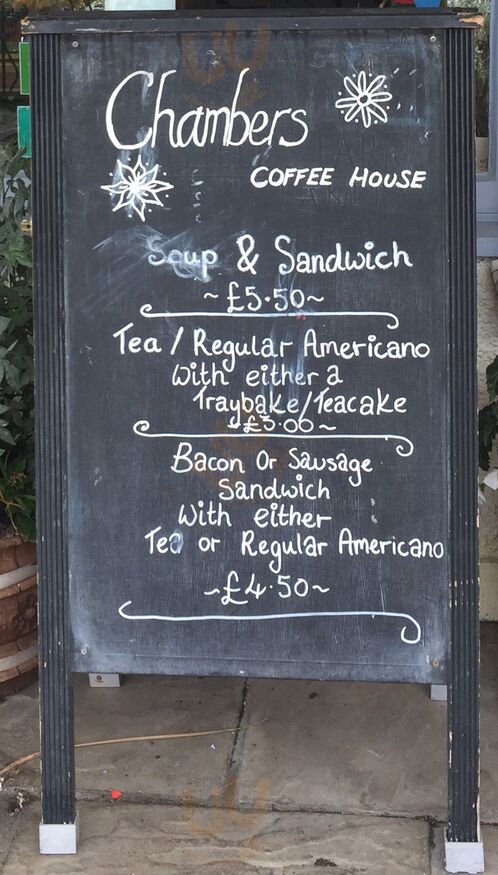 Chambers
COFFEE HOUSE
Soup & Sandwich
~ £5.50 ~
Tea / Regular Americano
With either a
Traybake/Teacake
£3.00 ~
Bacon Or Sausage
Sandwich
With either
Tea or Regular Americano
~ £4.50 ~